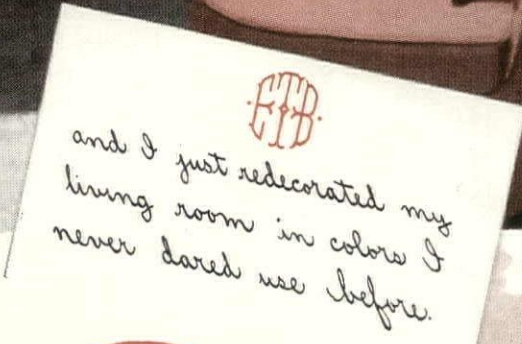 ETB
and I just redecorated my
living room in colors I
never dared use before.